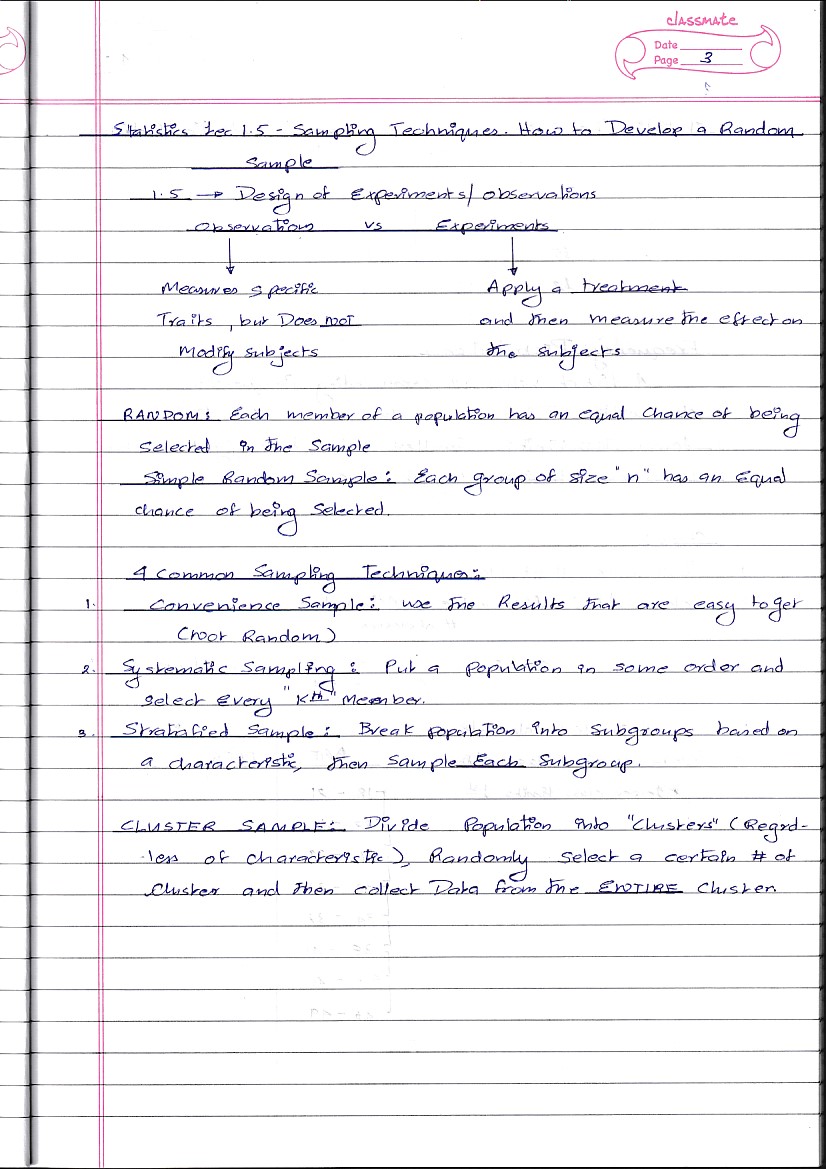 classmate
Date
Page 3
Statistics Lec 1.5 - Sampling Techniques. How to Develop a Random
Sample
1.5 → Design of Experiments/observations
Observations vs Experiments
Measures specific Apply a treatment
Traits, but Does not and then measure the effect on
Modify subjects the subjects
RANDOM: Each member of a population has an equal chance of being
selected in the sample
Simple Random Sample: Each group of size "n" has an equal
chance of being selected.
4 Common Sampling Techniques:
1. Convenience Sample: use the Results that are easy to get
(not Random)
2. Systematic Sampling: Put a population in some order and
select every "Kth" Member.
3. Stratafied Sample: Break population into subgroups based on
a characteristic, then sample Each subgroup.
CLUSTER SAMPLE: Divide Population into "Clusters" (Regrd-
less of characteristic), Randomly select a certain # of
Cluster and then collect Data from the ENTIRE Cluster.